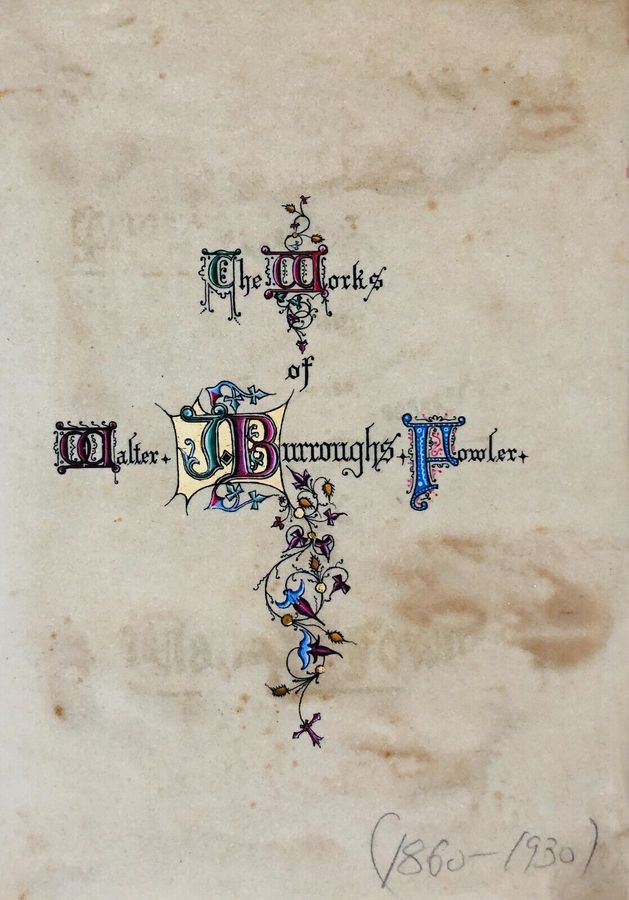 The Works
of
Walter. J. Burroughs. Fowler.
(1860-1930)